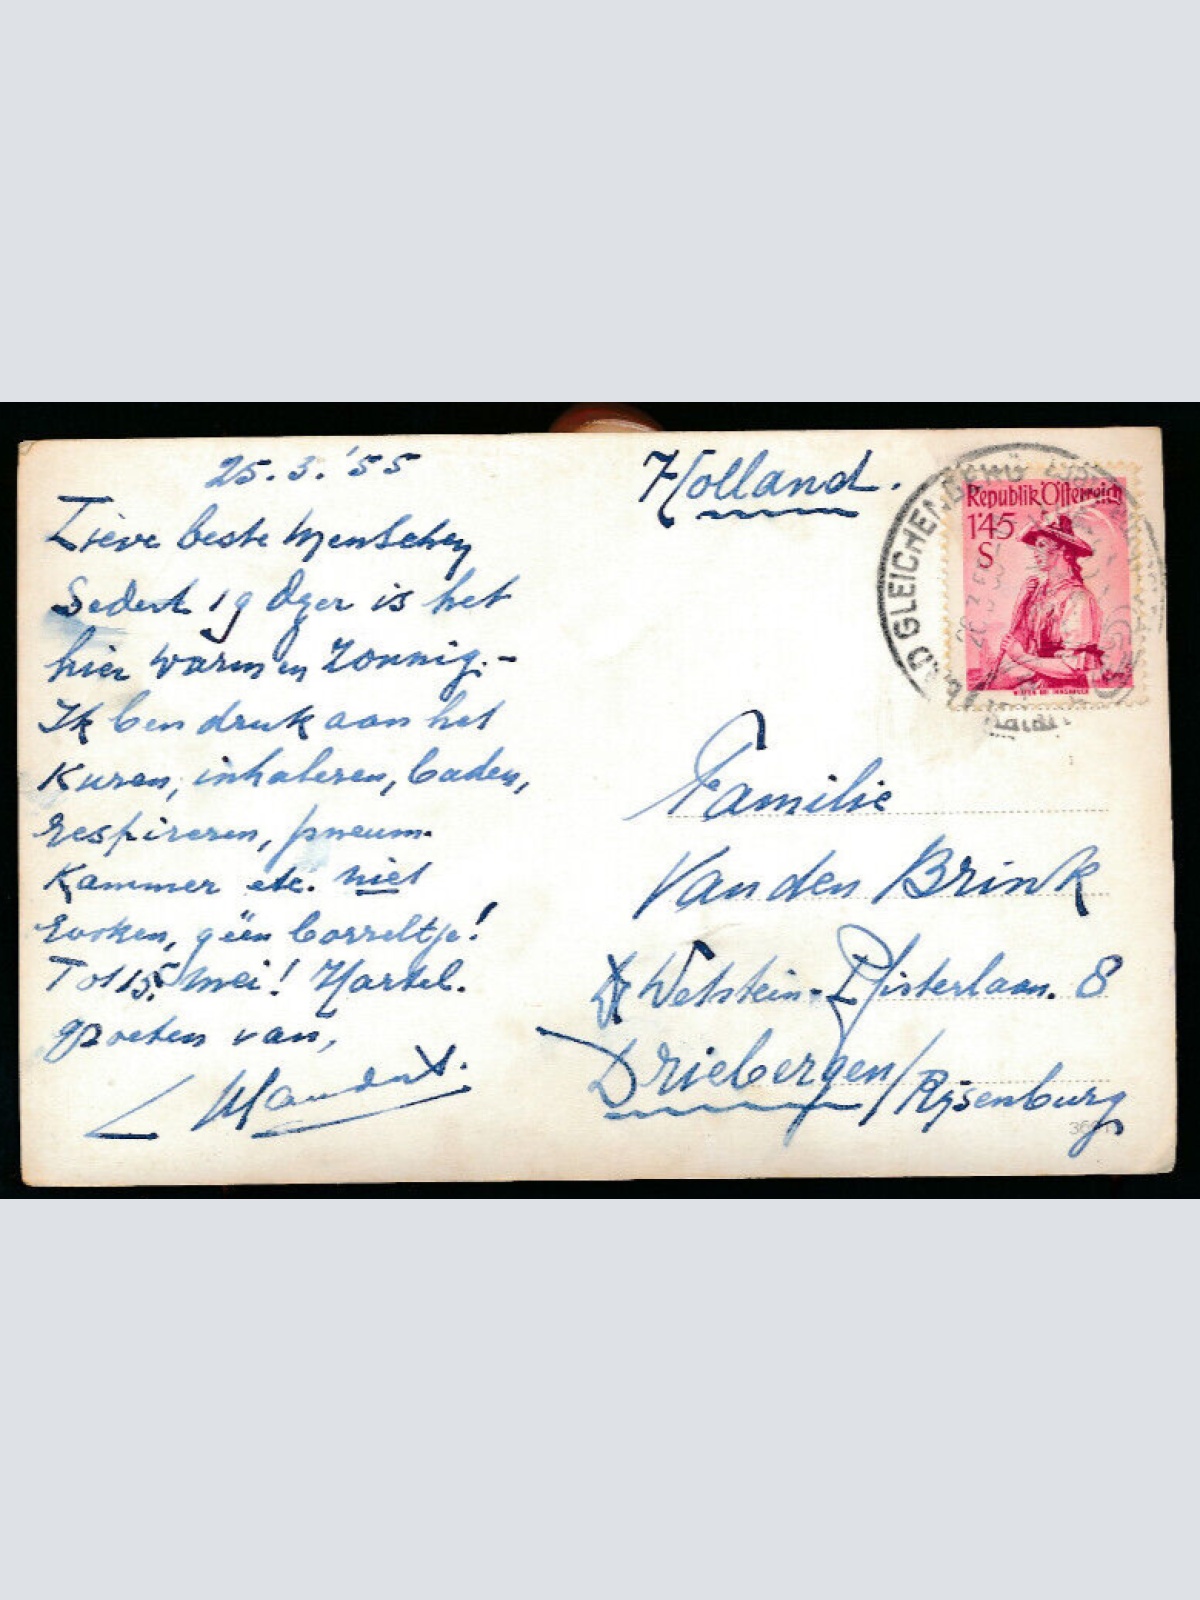 25.3.'55
Lieve beste Menschen
Sedert 19 dezer is het
hier warm en zonnig.-
Ik ben druk aan het
Kuren, inhaleren, baden,
respireren, pneum.
Kammer etc. niet
roken, géén borreltje!
Tot 15 mei! Hartel.
groeten van,
Holland.
Republik Österreich
1'45
S
BAD GLEICHENBERG
Familie
Van den Brink
Dr Wetstein-Pfisterlaan. 8
Driebergen/Rijsenburg